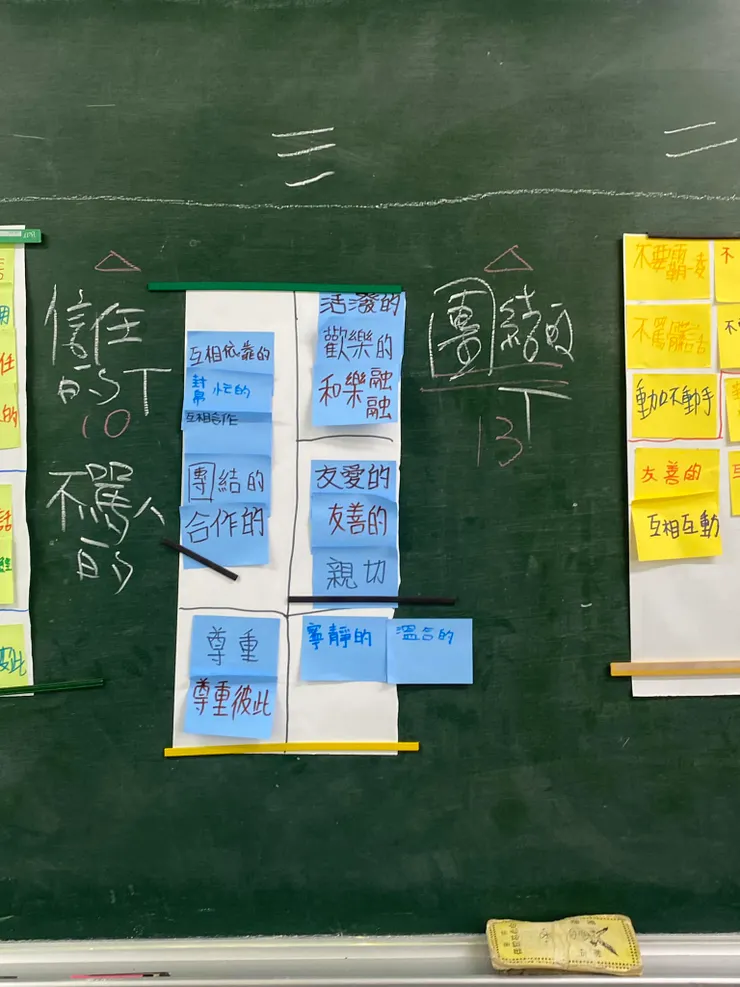 三
二
信任
的
10
不罵人
的
互相依靠的
忙的
互相合作
團結的
合作的
尊重
尊重彼此
活潑的
歡樂的
和樂融
融
友愛的
友善的
親切
寧靜的
溫合的
團結的
13
不要霸凌
不罵髒話
動口不動手
友善的
互相互動
任
的
話
彼此